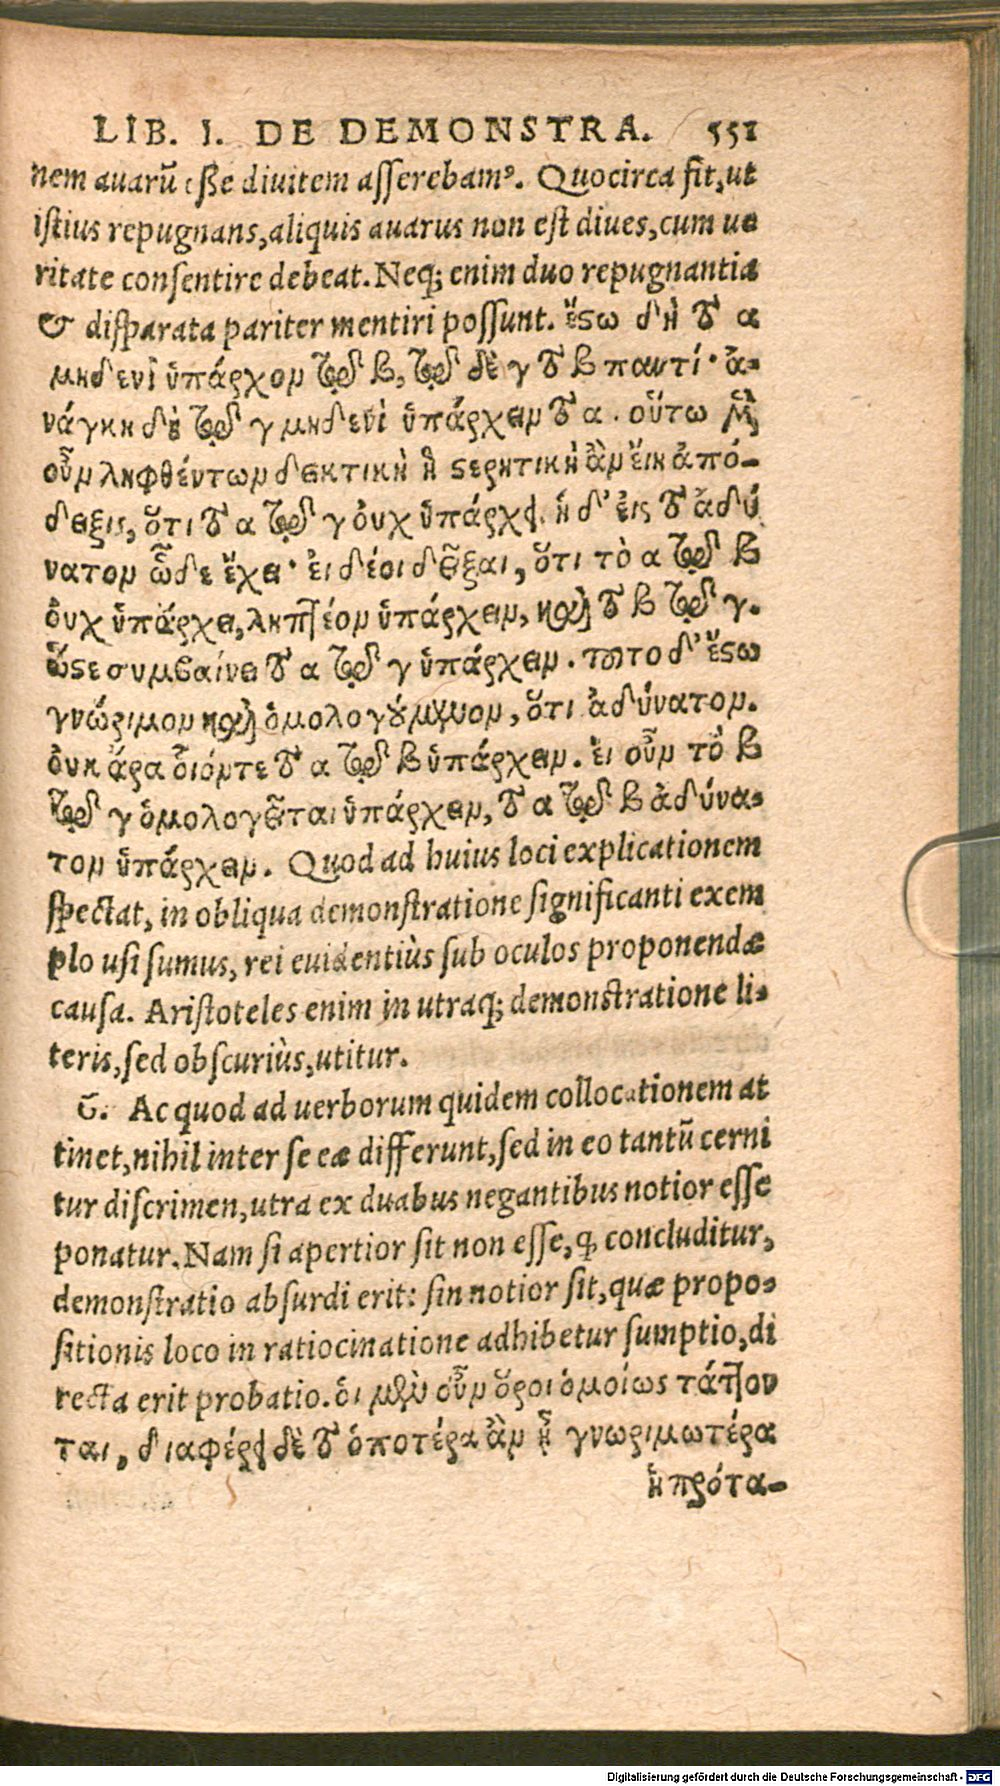 LIB. I. DE DEMONSTRA. 551
nem auarũ esse diuitem asserebamꝰ. Quocirca fit, ut
istius repugnans, aliquis auarus non est diues, cum ue
ritate consentire debeat. Neq; enim duo repugnantia
& disparata pariter mentiri possunt. ἔστω δὴ τὸ α
μηδενὶ ὑπάρχον τῷ β, τῷ δὲ γ τὸ β παντί· ἀ-
νάγκη δὴ τῷ γ μηδενὶ ὑπάρχειν τὸ α. οὕτω μὲν
οὖν ληφθέντων δεικτικὴ ἡ στερητικὴ ἂν εἴη ἀπό-
δειξις, ὅτι τὸ α τῷ γ οὐχ ὑπάρχει. ἡ δ' εἰς τὸ ἀδύ
νατον ὧδε ἔχει· εἰ δέοι δεῖξαι, ὅτι τὸ α τῷ β
οὐχ ὑπάρχει, ληπτέον ὑπάρχειν, καὶ τὸ β τῷ γ.
ὥστε συμβαίνει τὸ α τῷ γ ὑπάρχειν. τοῦτο δ' ἔστω
γνώριμον καὶ ὁμολογούμενον, ὅτι ἀδύνατον.
οὐκ ἄρα οἷόν τε τὸ α τῷ β ὑπάρχειν. εἰ οὖν τὸ β
τῷ γ ὁμολογεῖται ὑπάρχειν, τὸ α τῷ β ἀδύνα-
τον ὑπάρχειν. Quod ad huius loci explicationem
spectat, in obliqua demonstratione significanti exem
plo usi sumus, rei euidentiùs sub oculos proponendæ
causa. Aristoteles enim in utraq; demonstratione li-
teris, sed obscuriùs, utitur.
G. Ac quod ad uerborum quidem collocationem at
tinet, nihil inter se eæ differunt, sed in eo tantũ cerni
tur discrimen, utra ex duabus negantibus notior esse
ponatur. Nam si apertior sit non esse, q̃ concluditur,
demonstratio absurdi erit: sin notior sit, quæ propo-
sitionis loco in ratiocinatione adhibetur sumptio, di
recta erit probatio. οἱ μὲν οὖν ὅροι ὁμοίως τάττον
ται, διαφέρει δὲ τὸ ὁποτέρα ἂν ᾖ γνωριμωτέρα
ἡ πρότα-
Digitalisierung gefördert durch die Deutsche Forschungsgemeinschaft - DFG